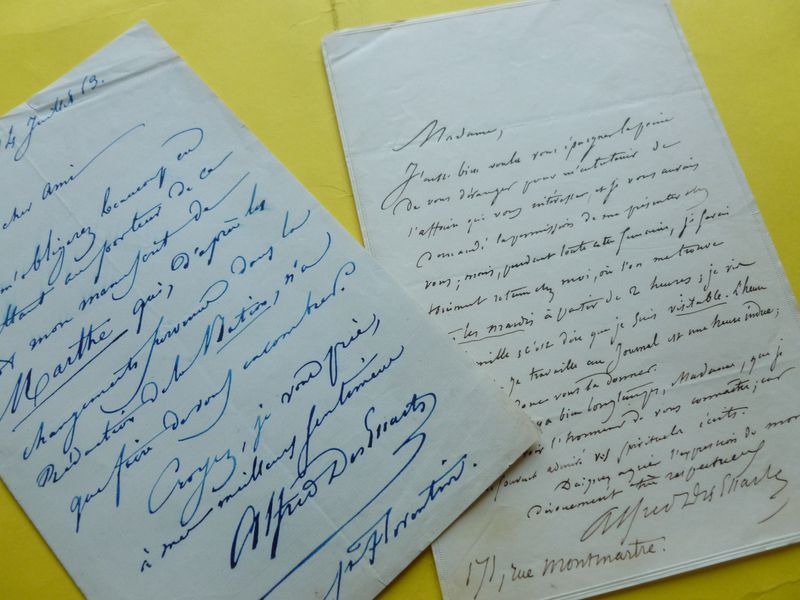 4 Juillet 63.
cher ami
m'obligerez beaucoup en
au porteur de ce
mon manuscrit de
Marthe qui, d'après les
changements survenus dans la
Rédaction de la Nation, n'a
que faire de vous encombrer.
Croyez, je vous prie,
à mes meilleurs sentiments
Alfred Des Essarts
St Florentin.
Madame,
J'aurais bien voulu vous épargner la peine
de vous déranger pour m'entretenir de
l'affaire qui vous intéresse, et je vous aurais
demandé la permission de me présenter chez
vous; mais, pendant toute cette semaine, je serai
retenu chez moi, où l'on me trouve
les mardis à partir de 2 heures; je vis
famille; c'est dire que je suis visitable. L'heure
je travaille au Journal est une heure indue;
vous la donner.
a bien longtemps, Madame, que je
l'honneur de vous connaître; car
souvent admiré vos spirituels écrits.
Daignez agréer l'expression de mon
dévouement très respectueux
Alfred Des Essarts
171, rue Montmartre.